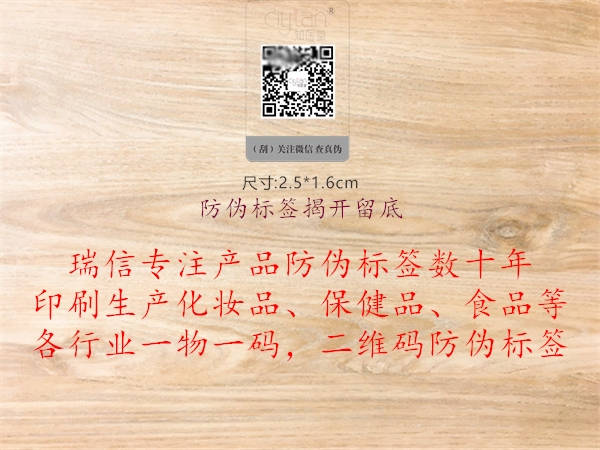 （刮）关注微信 查真伪
尺寸:2.5*1.6cm
防伪标签揭开留底
瑞信专注产品防伪标签数十年
印刷生产化妆品、保健品、食品等
各行业一物一码，二维码防伪标签